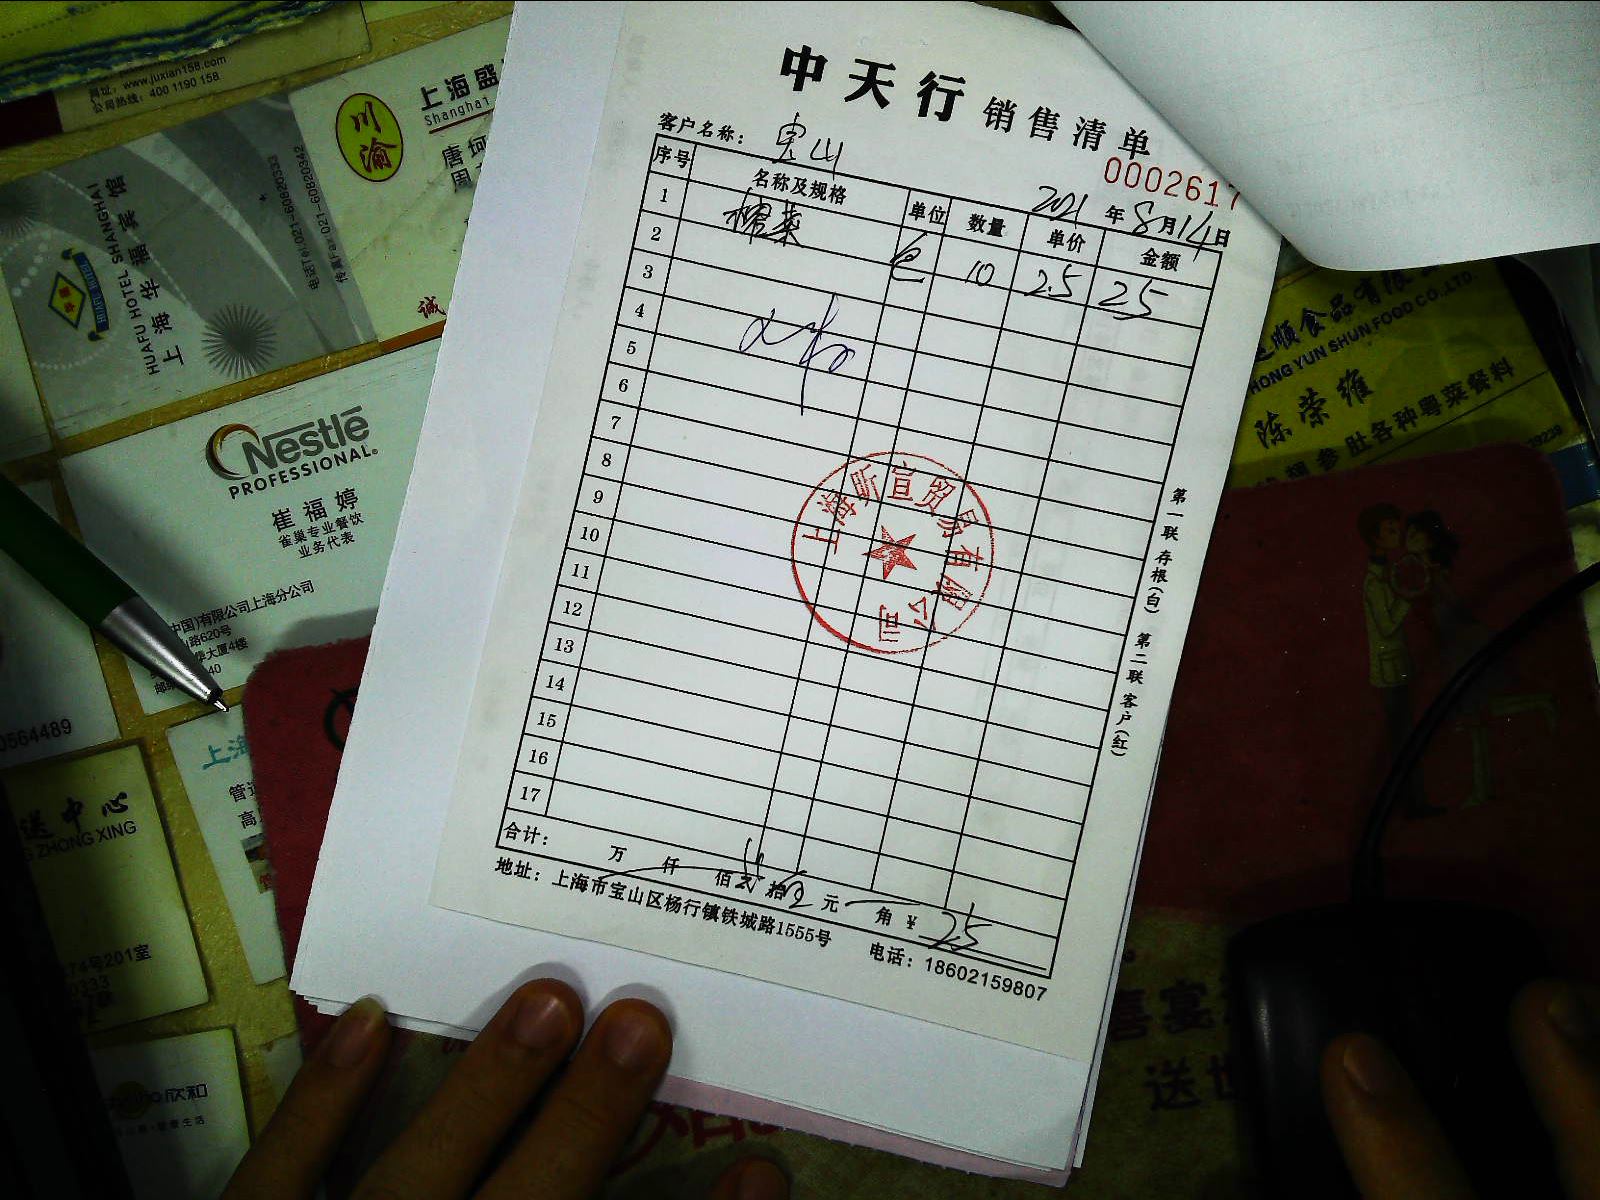 网址：www.juxian158.com
公司热线：400 1190 158
川渝
上海盛
Shanghai
唐
周
诚
上海华福宾馆
HUAFU HOTEL SHANGHAI
电话Tel:021-60820333
传真Fax:021-60820342
Nestlē
PROFESSIONAL®
崔福婷
雀巢专业餐饮
业务代表
中国)有限公司上海分公司
山路620号
华大厦4楼
0564489
上海
管
高
送中心
ZHONG XING
74号201室
0333
欣和
中天行 销售清单
0002617
客户名称： 宝山
2021 年 8 月 14 日
序号 名称及规格 单位 数量 单价 金额
1 榨菜 包 10 2.5 25
2
3
4
5
6
7
8
9
10
11
12
13
14
15
16
17
上海昕宣贸易有限公司
合计： 万 仟 佰 贰 拾 元 角 ¥ 25
地址：上海市宝山区杨行镇铁城路1555号 电话：18602159807
第一联 存根(白) 第二联 客户(红)
顺食品有限
HONG YUN SHUN FOOD CO.,LTD.
陈荣雍
参肚各种粤菜餐料
喜宴
送